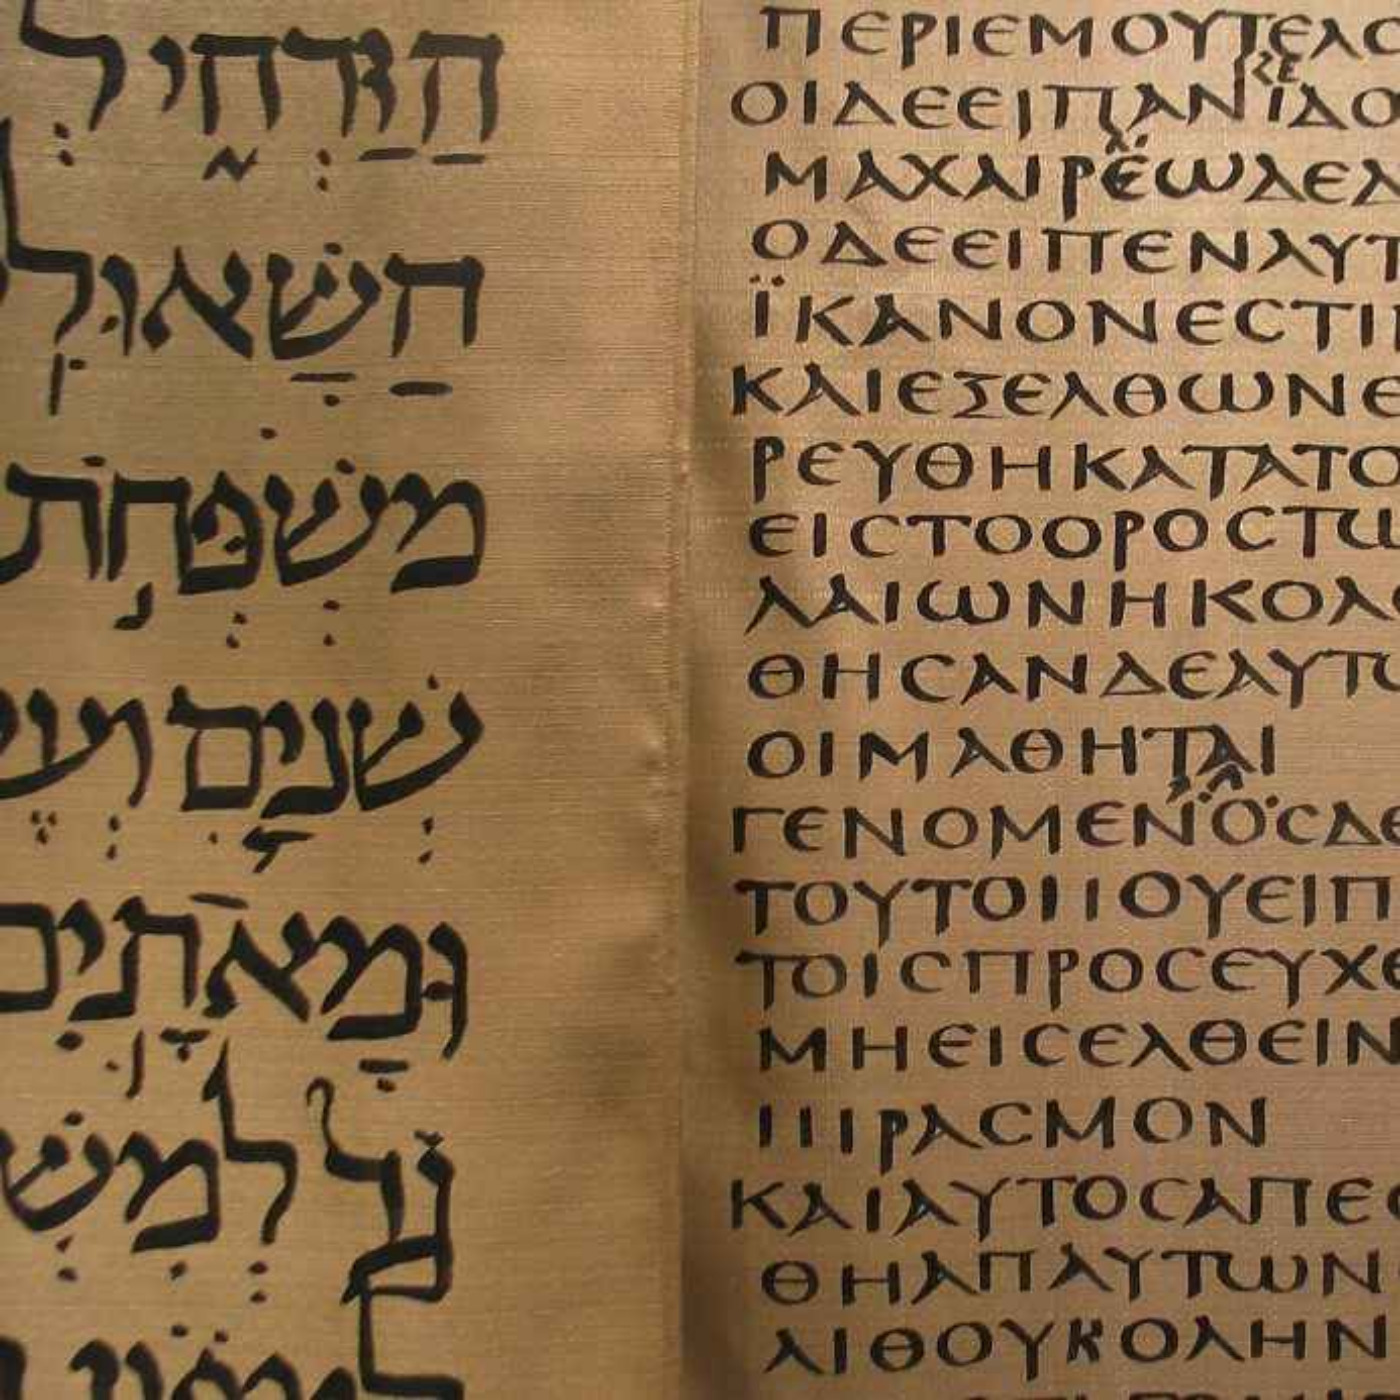 הַזַּרְחִ֑י ל
הַשָּׁאוּלִֽי
מִשְׁפְּחֹ֖ת
שְׁנַ֧יִם וְעֶשׂ
וּמָאתָֽיִם
לְמִשׁ
ΠΕΡΙΕΜΟΥΤΕΛΟ
ΟΙΔΕΕΙΠΑΝΙΔΟ
ΜΑΧΑΙΡΕΩΔΕΔ
ΟΔΕΕΙΠΕΝΑΥΤ
ΪΚΑΝΟΝΕϹΤΙΝ
ΚΑΙΕΞΕΛΘΩΝΕ
ΡΕΥΘΗΚΑΤΑΤΟ
ΕΙϹΤΟΟΡΟϹΤΩ
ΛΑΙΩΝΗΚΟΛΟ
ΘΗϹΑΝΔΕΑΥΤΩ
ΟΙΜΑΘΗΤΑΙ
ΓΕΝΟΜΕΝΟϹΔΕ
ΤΟΥΤΟΠΟΥΕΙΠ
ΤΟΙϹΠΡΟϹΕΥΧΕ
ΜΗΕΙϹΕΛΘΕΙΝ
ΠΙΡΑϹΜΟΝ
ΚΑΙΑΥΤΟϹΑΠΕϹ
ΘΗΑΠΑΥΤΩΝ
ΛΙΘΟΥΚΟΛΗΝ